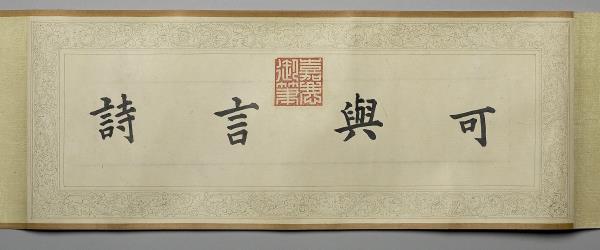 可與言詩
嘉慶
御筆